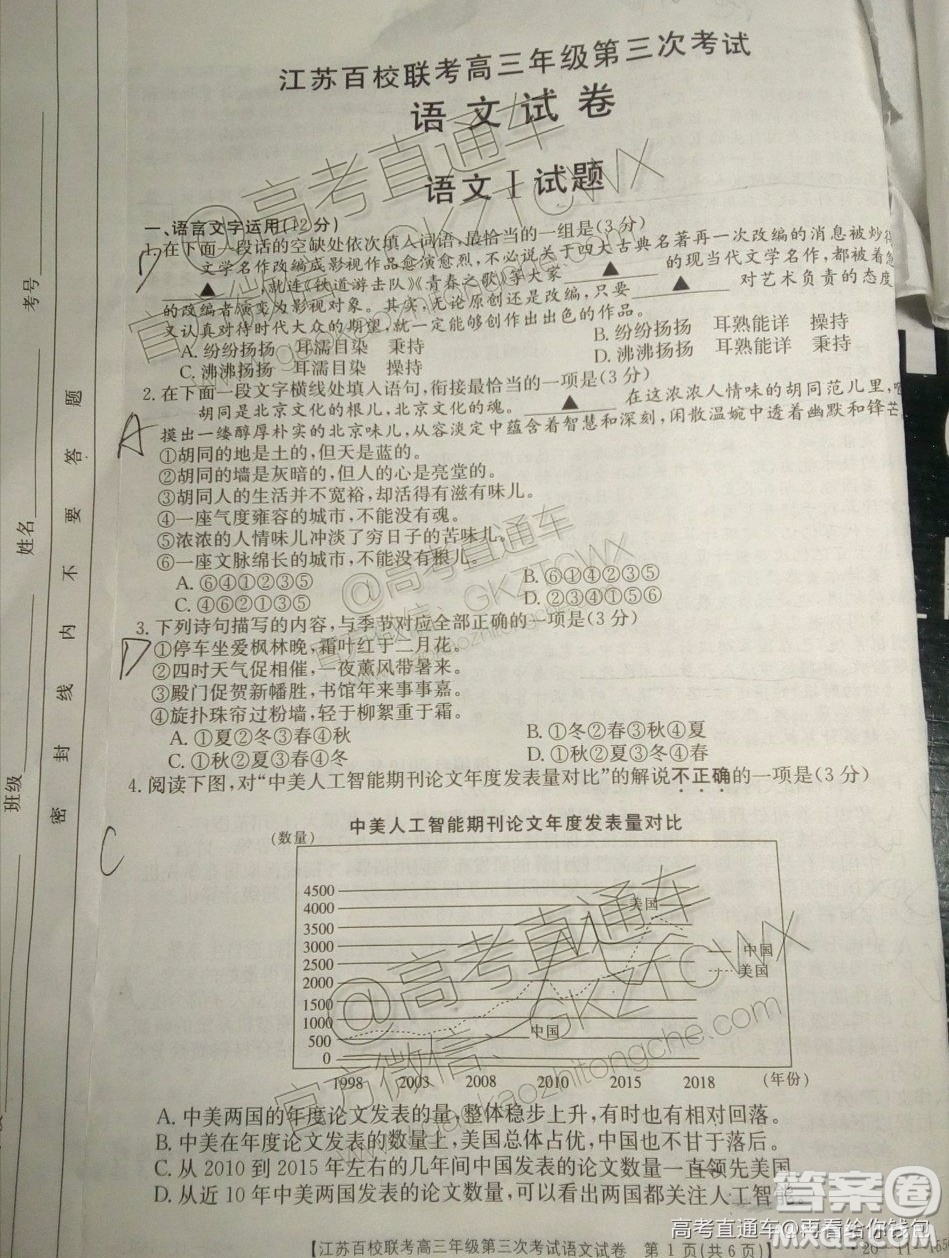 江苏百校联考高三年级第三次考试
语文试卷
语文Ⅰ试题
一、语言文字运用(12分)
1.在下面一段话的空缺处依次填入词语,最恰当的一组是(3分)
文学名作改编成影视作品愈演愈烈,不必说关于四大古典名著再一次改编的消息被炒得
▲,就连《铁道游击队》《青春之歌》等大家 ▲ 的现当代文学名作,都被着急
的改编者演变为影视对象。其实,无论原创还是改编,只要 ▲ 对艺术负责的态度
又认真对待时代大众的期望,就一定能够创作出出色的作品。
A.纷纷扬扬 耳濡目染 秉持
B.纷纷扬扬 耳熟能详 操持
C.沸沸扬扬 耳濡目染 操持
D.沸沸扬扬 耳熟能详 秉持
2.在下面一段文字横线处填入语句,衔接最恰当的一项是(3分)
胡同是北京文化的根儿,北京文化的魂。 ▲ 在这浓浓人情味的胡同范儿里,
摸出一缕醇厚朴实的北京味儿,从容淡定中蕴含着智慧和深刻,闲散温婉中透着幽默和锋芒
①胡同的地是土的,但天是蓝的。
②胡同的墙是灰暗的,但人的心是亮堂的。
③胡同人的生活并不宽裕,却活得有滋有味儿。
④一座气度雍容的城市,不能没有魂。
⑤浓浓的人情味儿冲淡了穷日子的苦味儿。
⑥一座文脉绵长的城市,不能没有根儿。
A.⑥④①②③⑤
B.⑥①④②③⑤
C.④⑥②①③⑤
D.②③④①⑤⑥
3.下列诗句描写的内容,与季节对应全部正确的一项是(3分)
①停车坐爱枫林晚,霜叶红于二月花。
②四时天气促相催,一夜薰风带暑来。
③殿门促贺新幡胜,书馆年来事事嘉。
④旋扑珠帘过粉墙,轻于柳絮重于霜。
A.①夏②冬③春④秋
B.①冬②春③秋④夏
C.①秋②春③夏④冬
D.①秋②夏③春④冬
4.阅读下图,对“中美人工智能期刊论文年度发表量对比”的解说不正确的一项是(3分)
中美人工智能期刊论文年度发表量对比
(数量)
4500
4000
3500
3000
2500
2000
1500
1000
500
0
美国
中国
中国
美国
1998 2003 2008 2010 2015 2018 (年份)
A.中美两国的年度论文发表的量,整体稳步上升,有时也有相对回落。
B.中美在年度论文发表的数量上,美国总体占优,中国也不甘于落后。
C.从2010到2015年左右的几年间中国发表的论文数量一直领先美国
D.从近10年中美两国发表的论文数量,可以看出两国都关注人工智能。
【江苏百校联考高三年级第三次考试语文试卷 第1页(共6页)】
考号
姓名
班级
密封线内不要答题
D
A
D
C
@高考直通车
官方微信:GKZTCWX
gaokaozhitongche.com
高考直通车@再看给你钱包
答案圈
MXQE.COM